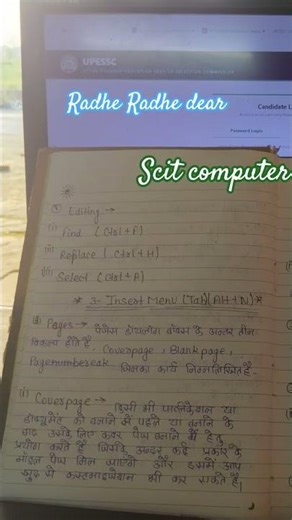 UPESSC
Candidate L
Radhe Radhe dear
Scit computer
Editing →
(i) Find (Ctrl+F)
(ii) Replace (Ctrl+H)
(iii) Select (Ctrl+A)
* 3- Insert Menu (Tab) (Alt+N) *
Pages → पेजेस डायलॉग बॉक्स के अन्दर तीन
विकल्प होते हैं, Coverpage, Blank page,
Pagenumbereak जिसका कार्य निम्नलिखित है-
(i) Coverpage → किसी भी या
को बनाने से पहले या बनाने के
बाद उसके लिए कवर पेज बनाने हेतु
प्रयोग करते हैं जिसके अन्दर कई प्रकार के
पेज मिल जाएगी और इसमें आप
खुद से कस्टमाइजेशन भी कर सकते हैं।